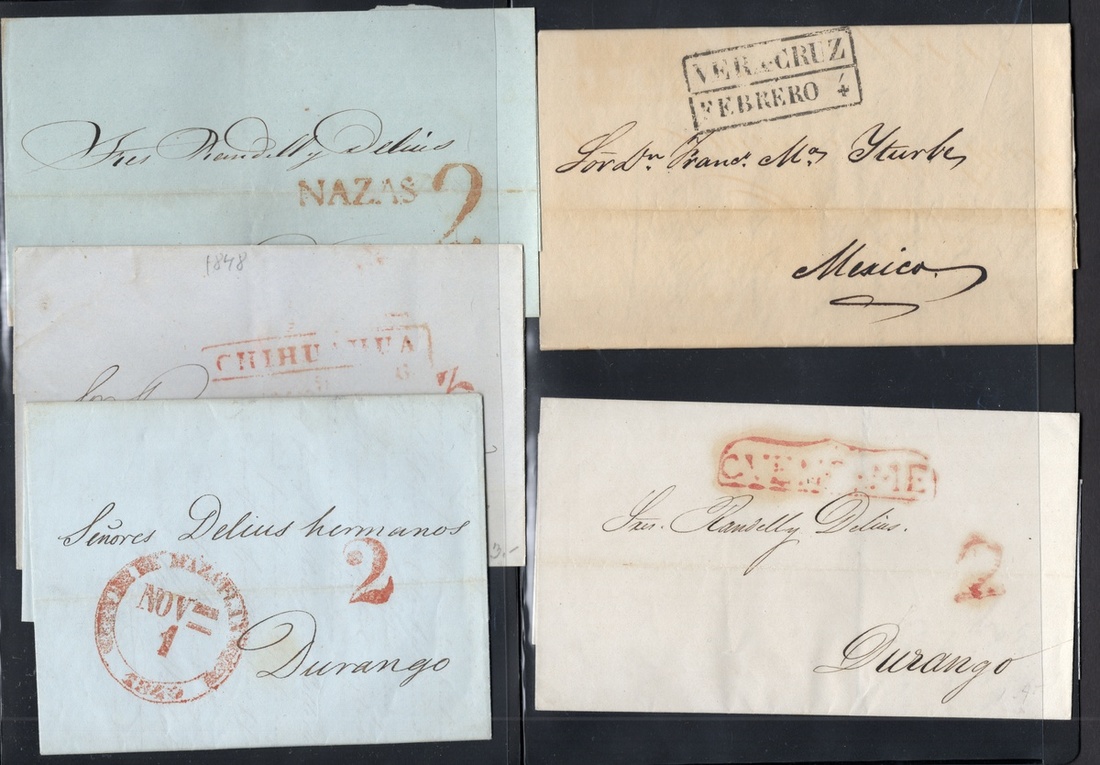 Sres Randell y Delius
NAZAS 2
1848
CHIHUAHUA
6
Señores Delius hermanos
2
DE MAZATLAN
NOVre
1
1849
Durango
3.-
VERA-CRUZ
FEBRERO 4
Sör Dn Franco Ma Yturbe
Mexico
CVENCAME
Sres. Randell y Delius.
2
Durango